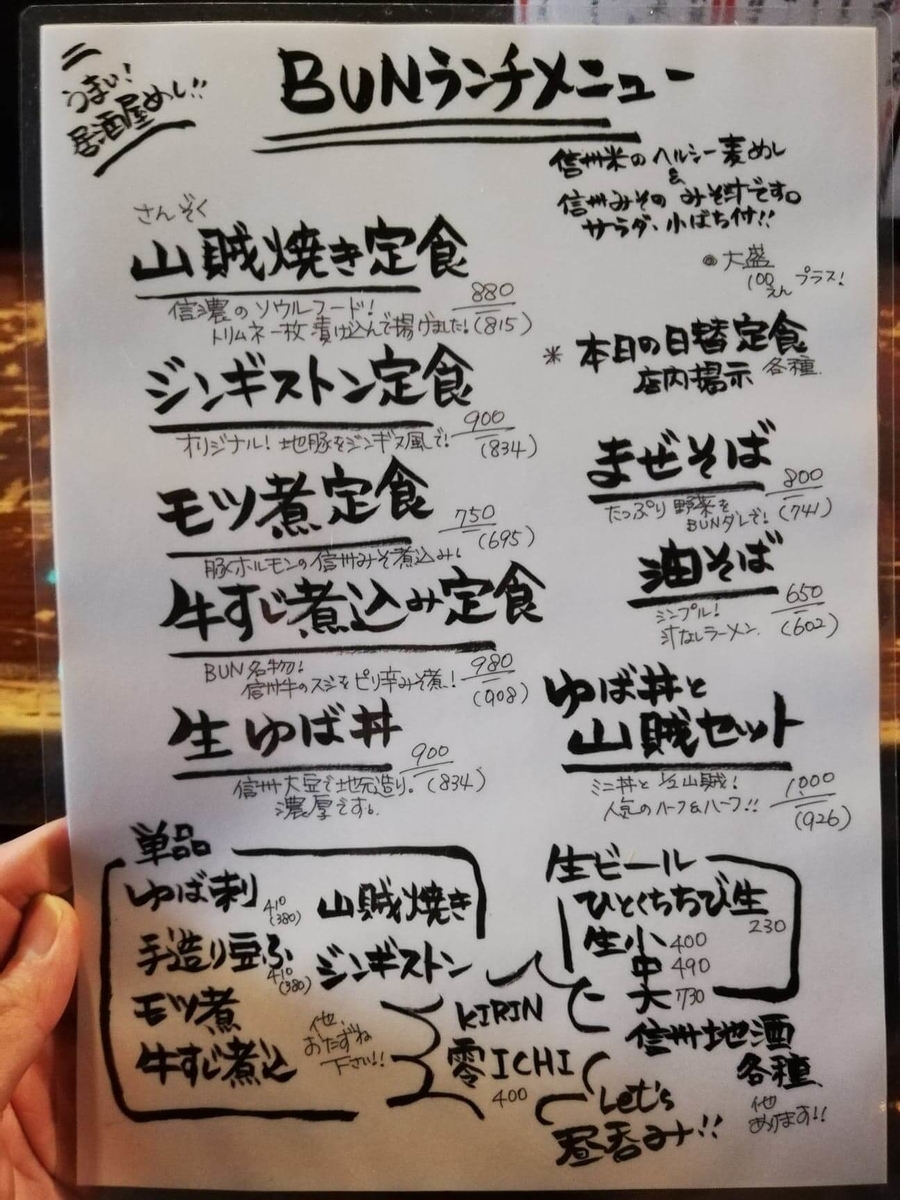 うまい!
居酒屋めし!!
BUNランチメニュー
信州米のヘルシー麦めし
&
信州みその みそ汁です。
サラダ、小ばち付!!
◎大盛
100えんプラス!
さんぞく
山賊焼き定食
880
(815)
信濃のソウルフード!
トリムネ一枚 漬け込んで揚げました!
ジンギストン定食
900
(834)
オリジナル! 地豚をジンギス風で!
モツ煮定食
750
(695)
豚ホルモンの信州みそ煮込み!
牛すじ煮込み定食
980
(908)
BUN名物!
信州牛のスジをピリ辛みそ煮!
生ゆば丼
900
(834)
信州大豆で地元造り。
濃厚です。
* 本日の日替定食
店内掲示 各種
まぜそば
800
(741)
たっぷり野菜を
BUNダレで!
油そば
650
(602)
シンプル!
汁なしラーメン
ゆば丼と
山賊セット
1,000
(926)
ミニ丼と 山賊!
人気のハーフ&ハーフ!!
単品
ゆば刺 410
(380)
手造り豆ふ 410
(380)
モツ煮
牛すじ煮込
山賊焼き
ジンギストン
他、
おたずね
下さい!!
生ビール
ひとくちちび生
230
生小 400
中 490
大 730
KIRIN
零ICHI
400
信州地酒
各種
他
あります!!
Let's
昼呑み!!